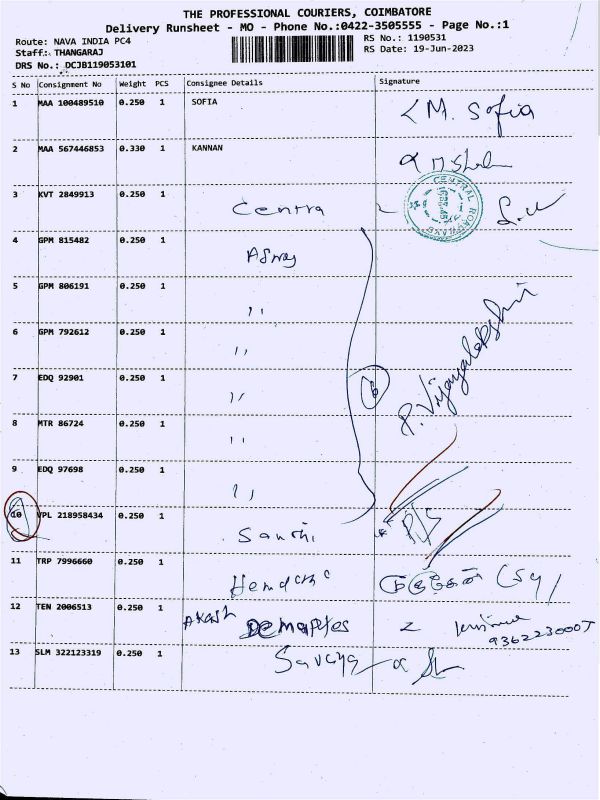 THE PROFESSIONAL COURIERS, COIMBATORE
Delivery Runsheet - MO - Phone No.:0422-3505555 - Page No.:1
Route: NAVA INDIA PC4 RS No.: 1190531
Staff: THANGARAJ RS Date: 19-Jun-2023
DRS No.: DCJB119053101
S No Consignment No Weight PCS Consignee Details Signature
1 MAA 100489510 0.250 1 SOFIA M. Sofia
2 MAA 567446853 0.330 1 KANNAN
3 KVT 2849913 0.250 1 Centra CENTRAL ROADWAYS
4 GPM 815482 0.250 1
5 GPM 806191 0.250 1 ,,
6 GPM 792612 0.250 1 ,,
7 EDQ 92901 0.250 1 ,, 6 P. Vijayalakshmi
8 MTR 86724 0.250 1 ,,
9 EDQ 97698 0.250 1 ,,
10 VPL 218958434 0.250 1
11 TRP 7996660 0.250 1
12 TEN 2006513 0.250 1 AKASH
13 SLM 322123319 0.250 1